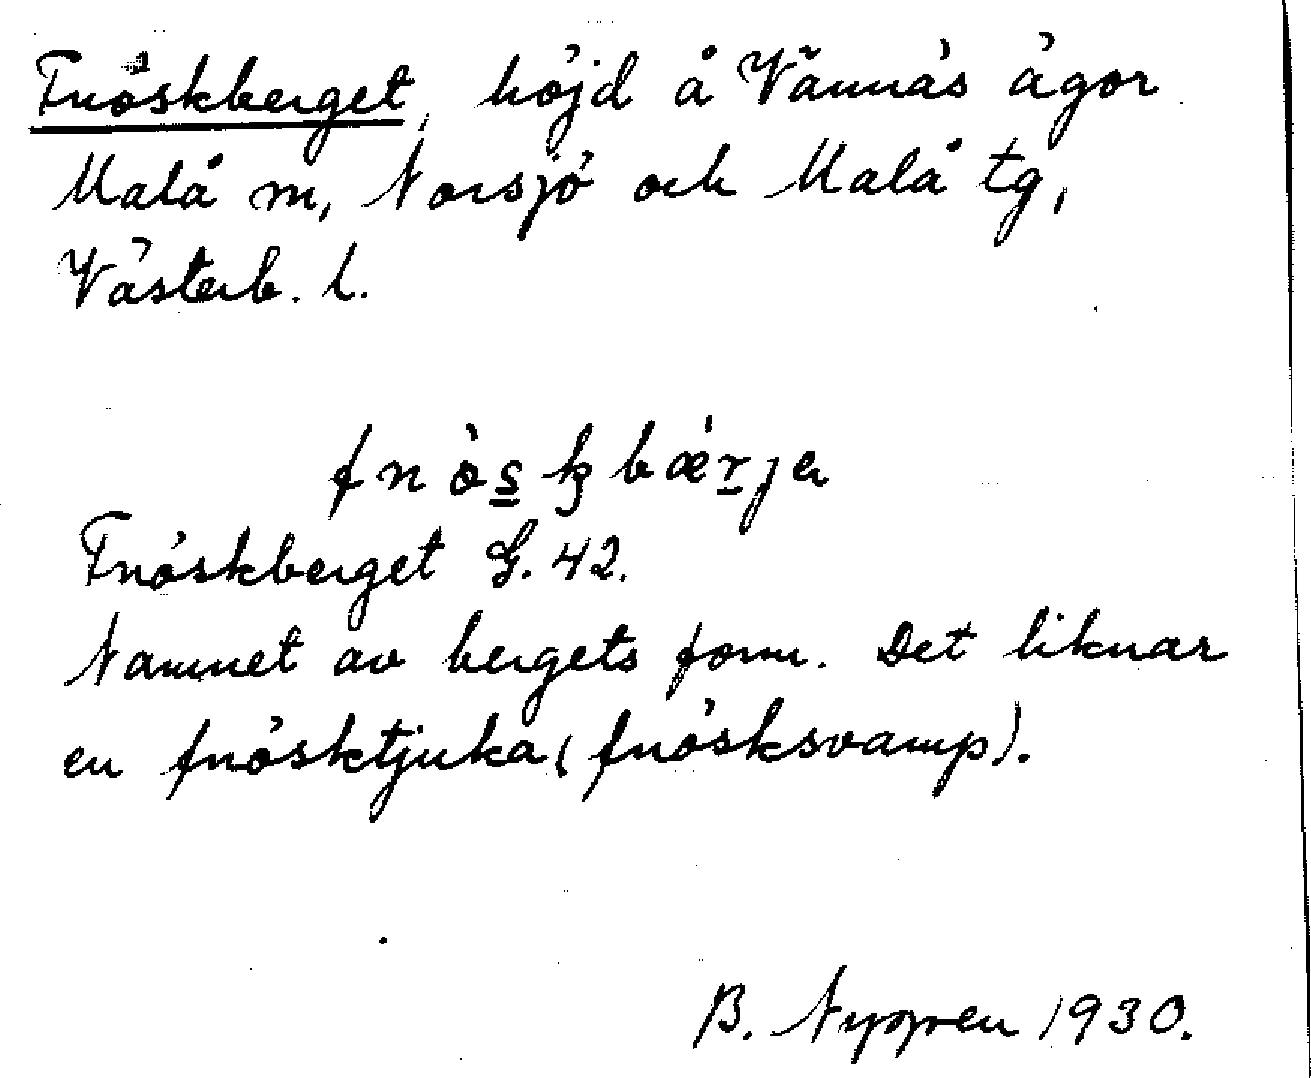 Fnöskberget, höjd å Vännäs ägor
Malå m, Norsjö och Malå tg,
Västerb. l.
fnòskbǽrjə
Fnöskberget G. 42.
Namnet av bergets form. Det liknar
en fnösktjuka (fnösksvamp).
B. Nyppren 1930.